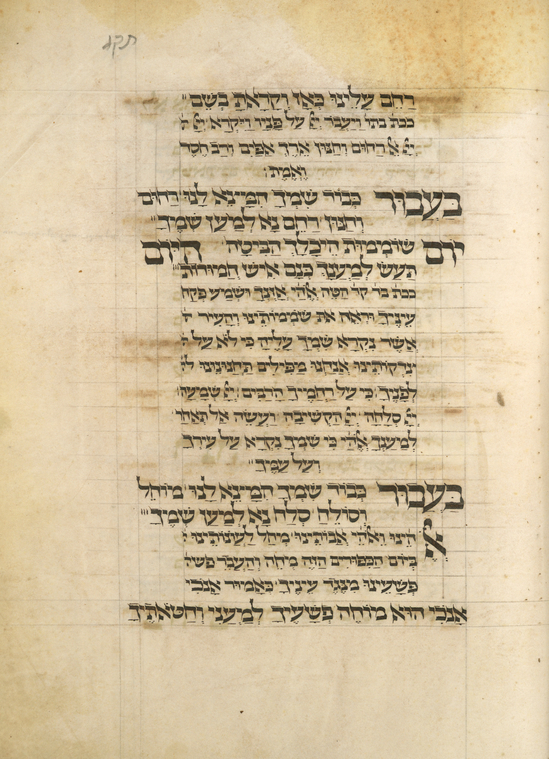 תקנ
רַחֵם עָלֵינוּ כְּאָז וְקָרָאתָ בְשֵׁם
ככת בתו ויעבר יי על פניו ויקרא יי
יי אל רחום וחנון ארך אפים ורב חסד
ואמת׃
בַּעֲבוּר כְּבוֹד שִׁמְךָ הִמָּצֵא לָנוּ רַחוּם
וְחַנּוּן רַחֵם נָא לְמַעַן שְׁמֶךָ
יוֹם שׁוֹמֵמוֹת הֵיכָלְךָ הַבִּיטָה הַיּוֹם
תַּעַשׂ לְמַעַנְךָ כְּנָם אִישׁ חֲמוּדוֹת
ככת בד קד הטה אלהי אזנך ושמע פקח
עיניך וראה את שממותינו והעיר
אשר נקרא שמך עליה כי לא על
צדקותינו אנחנו מפילים תחנונינו
לפניך כי על רחמיך הרבים יי שמעה
יי סלחה יי הקשיבה ועשה אל תאחר
למענך אלהי כי שמך נקרא על עירך
ועל עמך
בַּעֲבוּר כְּבוֹד שִׁמְךָ הִמָּצֵא לָנוּ מוֹחֵל
וְסוֹלֵחַ סְלַח נָא לְמַעַן שְׁמֶךָ
אלהינו ואלהי אבותינו מחל לעונותינו
ביום הכפורים הזה מחה והעבר
פשעינו מנגד עיניך כאמור אנכי
אָנֹכִי הוּא מוֹחֶה פְשָׁעֶיךָ לְמַעֲנִי וְחַטֹּאתֶיךָ